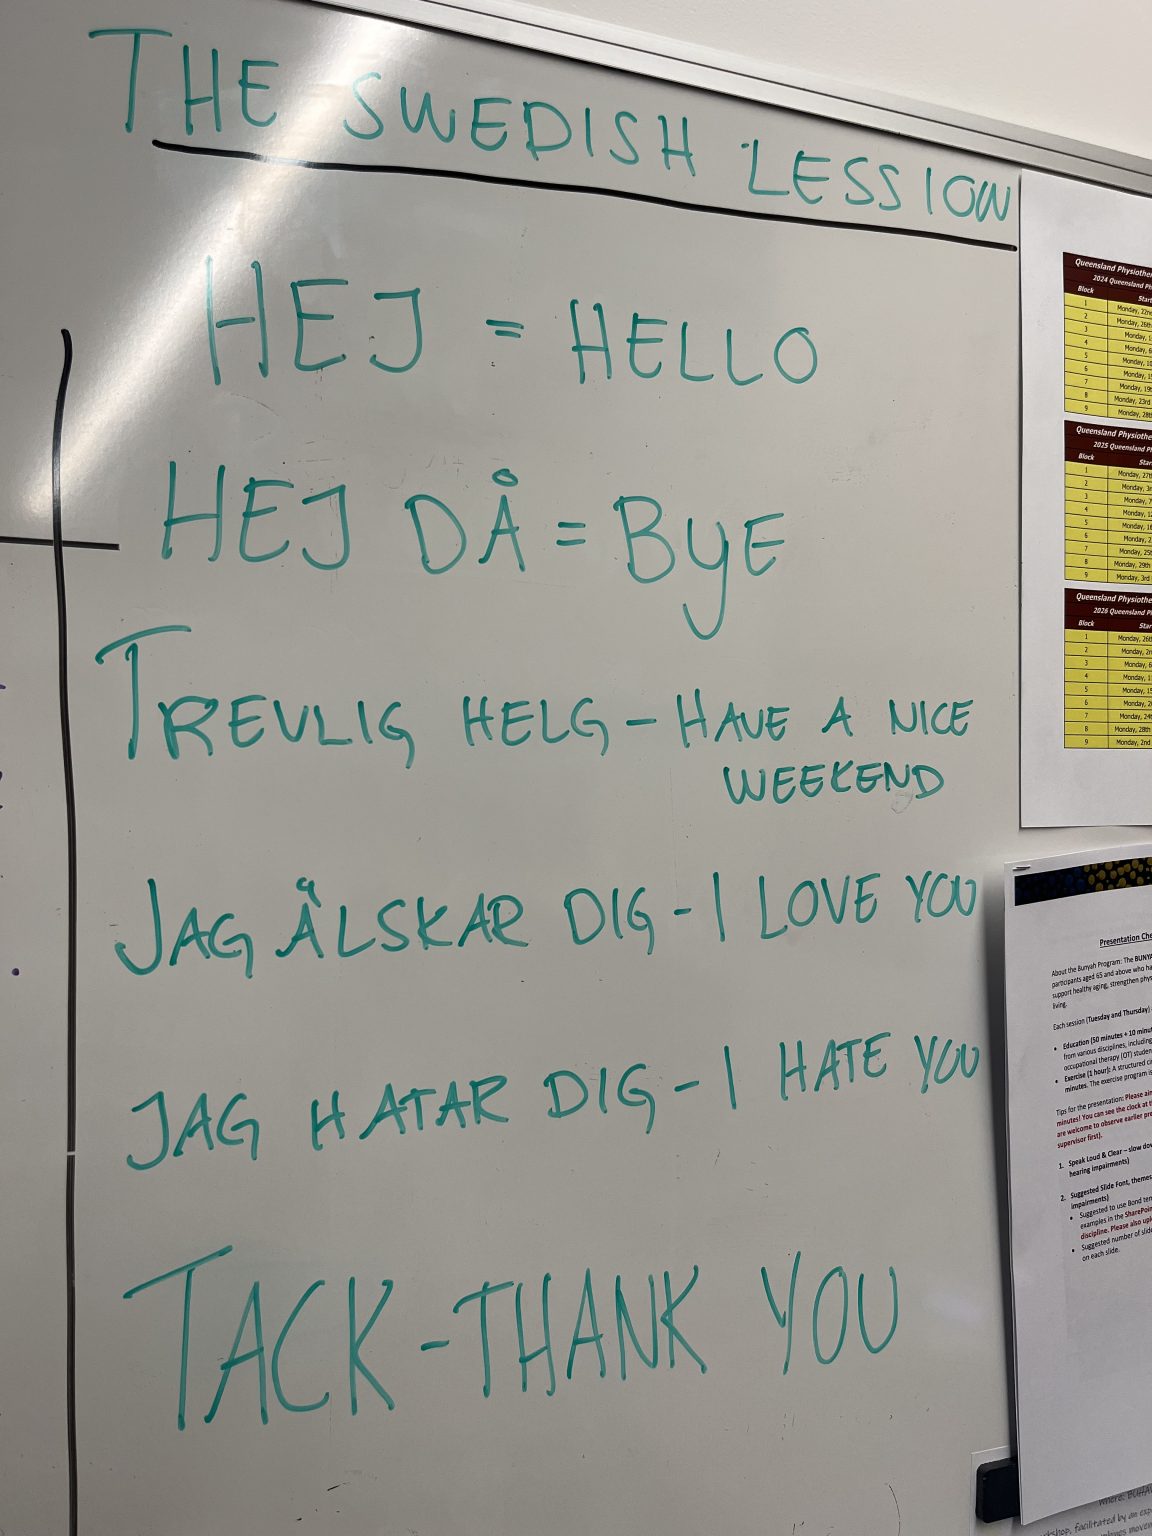 THE SWEDISH LESSION
HEJ = HELLO
HEJ DÅ = BYE
TREVLIG HELG - HAVE A NICE
WEEKEND
JAG ÄLSKAR DIG - I LOVE YOU
JAG HATAR DIG - I HATE YOU
TACK - THANK YOU
Queensland Physiothe
2024 Queensland Ph
Block Start
1 Monday, 22n
2 Monday, 26th
3 Monday, 1
4 Monday, 6
5 Monday, 10
6 Monday, 15
7 Monday, 19t
8 Monday, 23rd
9 Monday, 28th
Queensland Physiothe
2025 Queensland P
Block Star
1 Monday, 27t
2 Monday, 3r
3 Monday, 7
4 Monday, 12
5 Monday, 16
6 Monday, 2
7 Monday, 25t
8 Monday, 29th
9 Monday, 3rd
Queensland Physiothe
2026 Queensland P
Block Star
1 Monday, 26t
2 Monday, 2n
3 Monday, 6
4 Monday, 1
5 Monday, 15
6 Monday, 2
7 Monday, 24t
8 Monday, 28th
9 Monday, 2nd
Presentation Che
About the Bunyah Program: The BUNYA
participants aged 65 and above who ha
support healthy aging, strengthen phys
living.
Each session (Tuesday and Thursday)
• Education (50 minutes + 10 minut
from various disciplines, including
occupational therapy (OT) studen
• Exercise (1 hour): A structured ci
minutes. The exercise program is
Tips for the presentation: Please ain
minutes! You can see the clock at t
are welcome to observe earlier pre
supervisor first).
1. Speak Loud & Clear – slow dow
hearing impairments)
2. Suggested Slide Font, themes
impairments)
• Suggested to use Bond tem
examples in the SharePoin
discipline. Please also upl
• Suggested number of slide
on each slide.
where: BUHA
kshop, facilitated by an exp